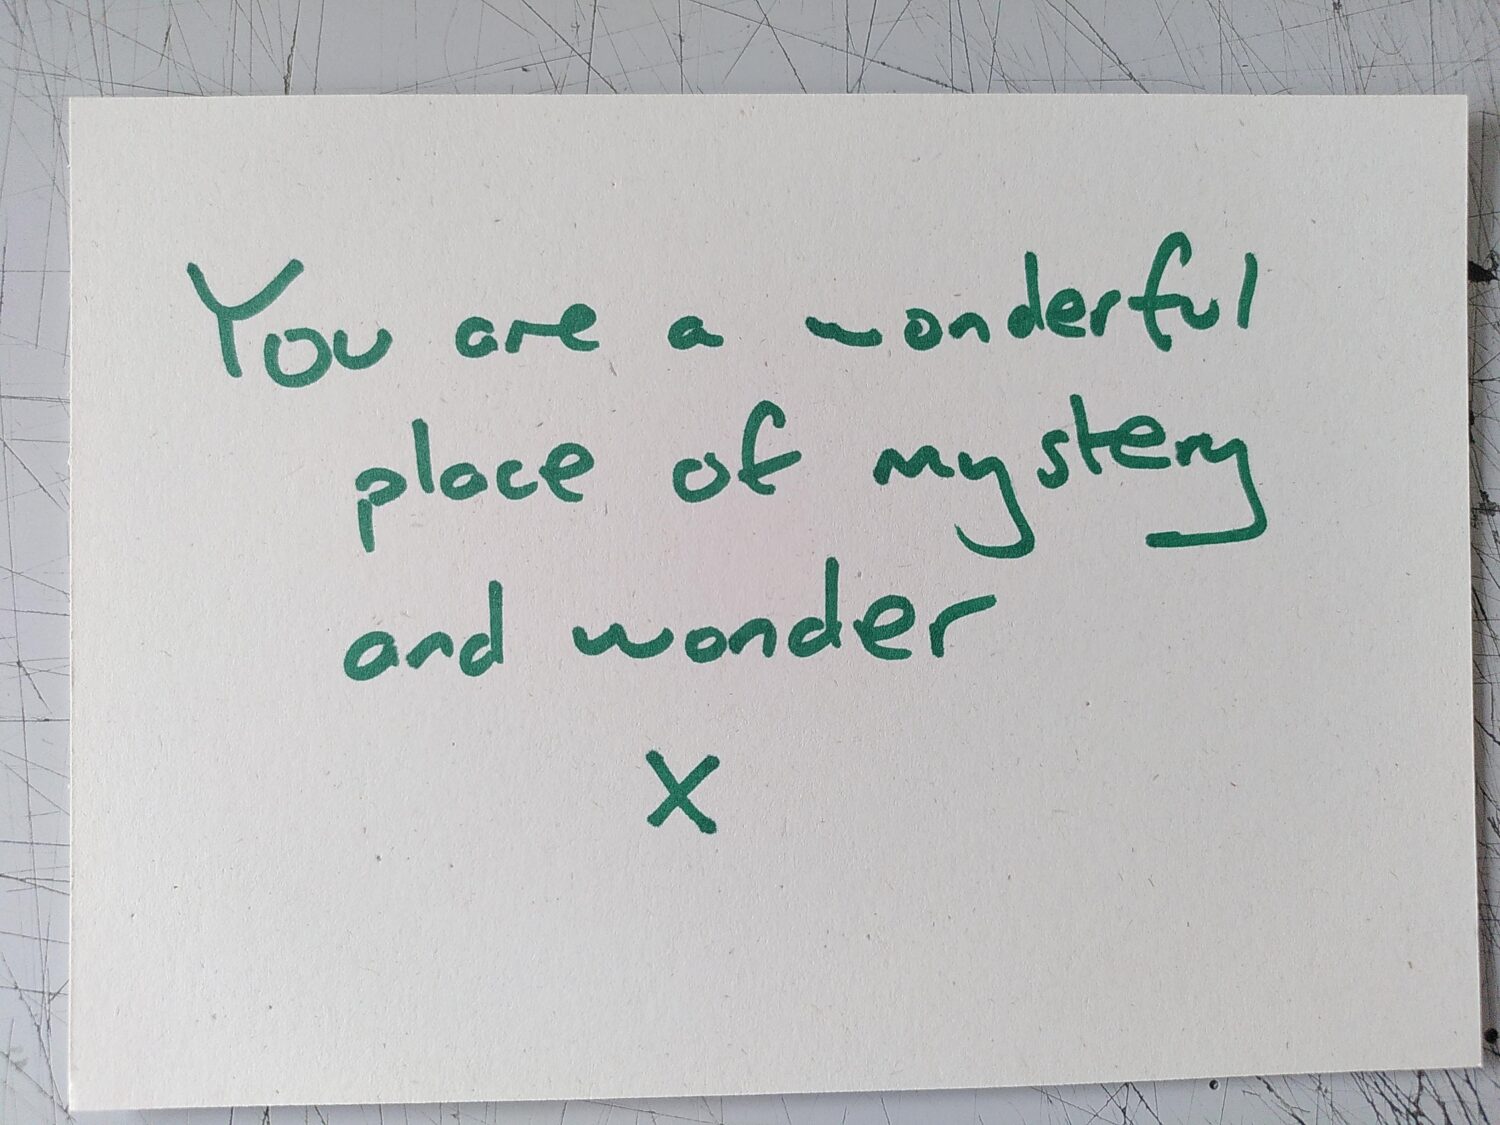 You are a wonderful
place of mystery
and wonder
X